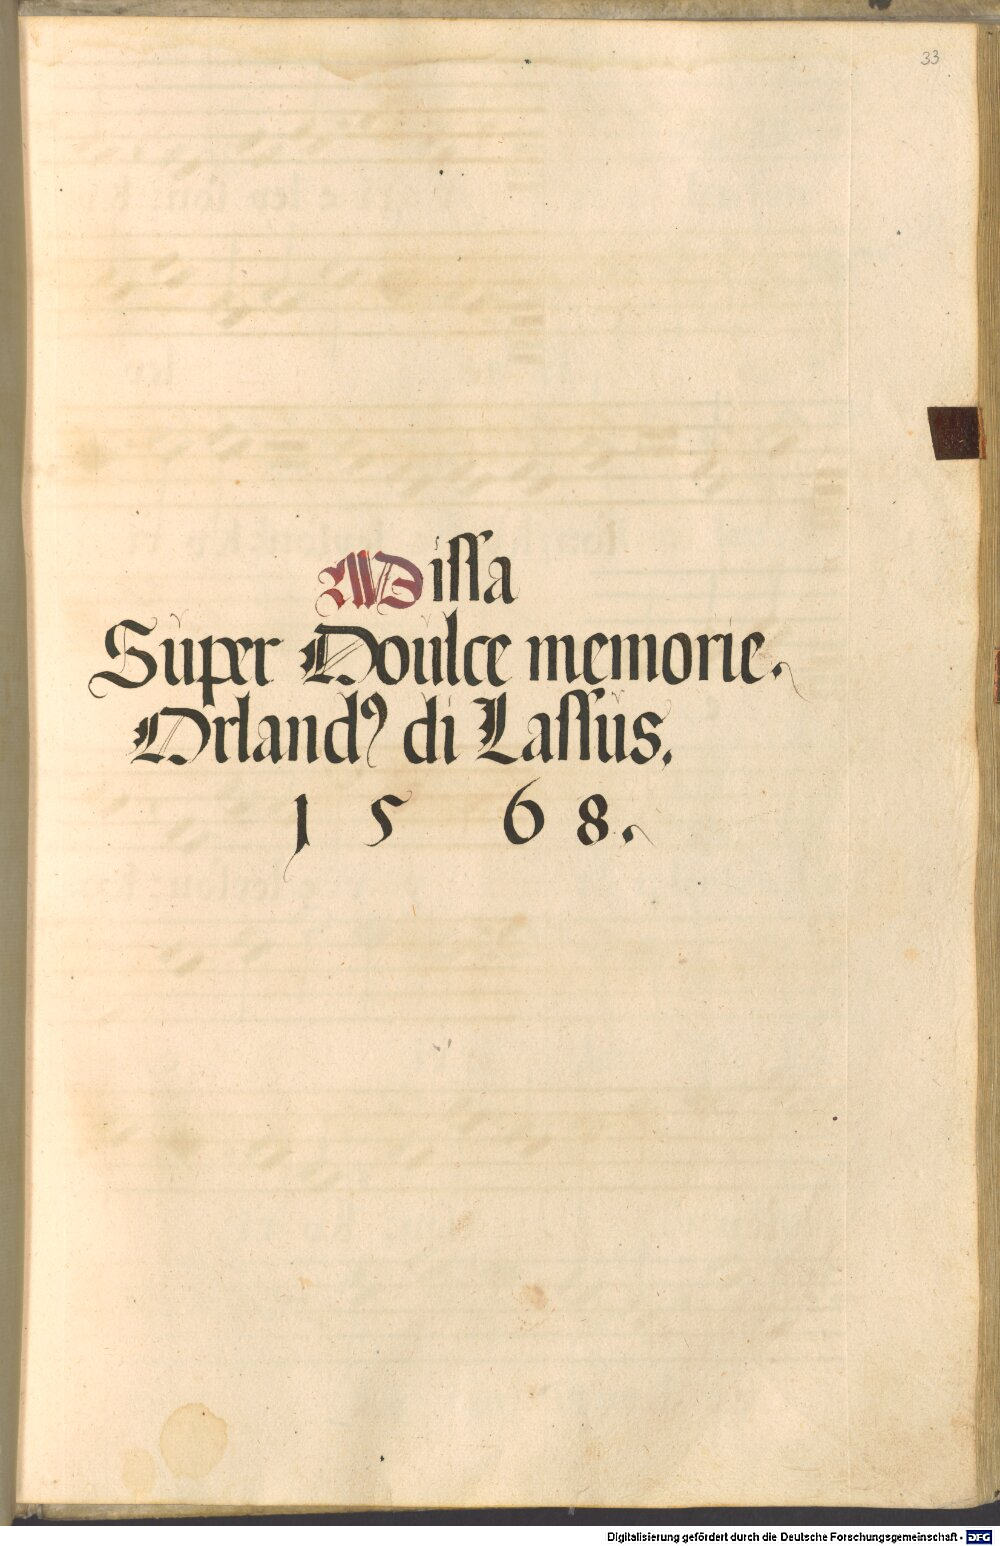 33
Missa
Super Doulce memorie.
Orlandꝰ di Lassus.
1568.
Digitalisierung gefördert durch die Deutsche Forschungsgemeinschaft - DFG